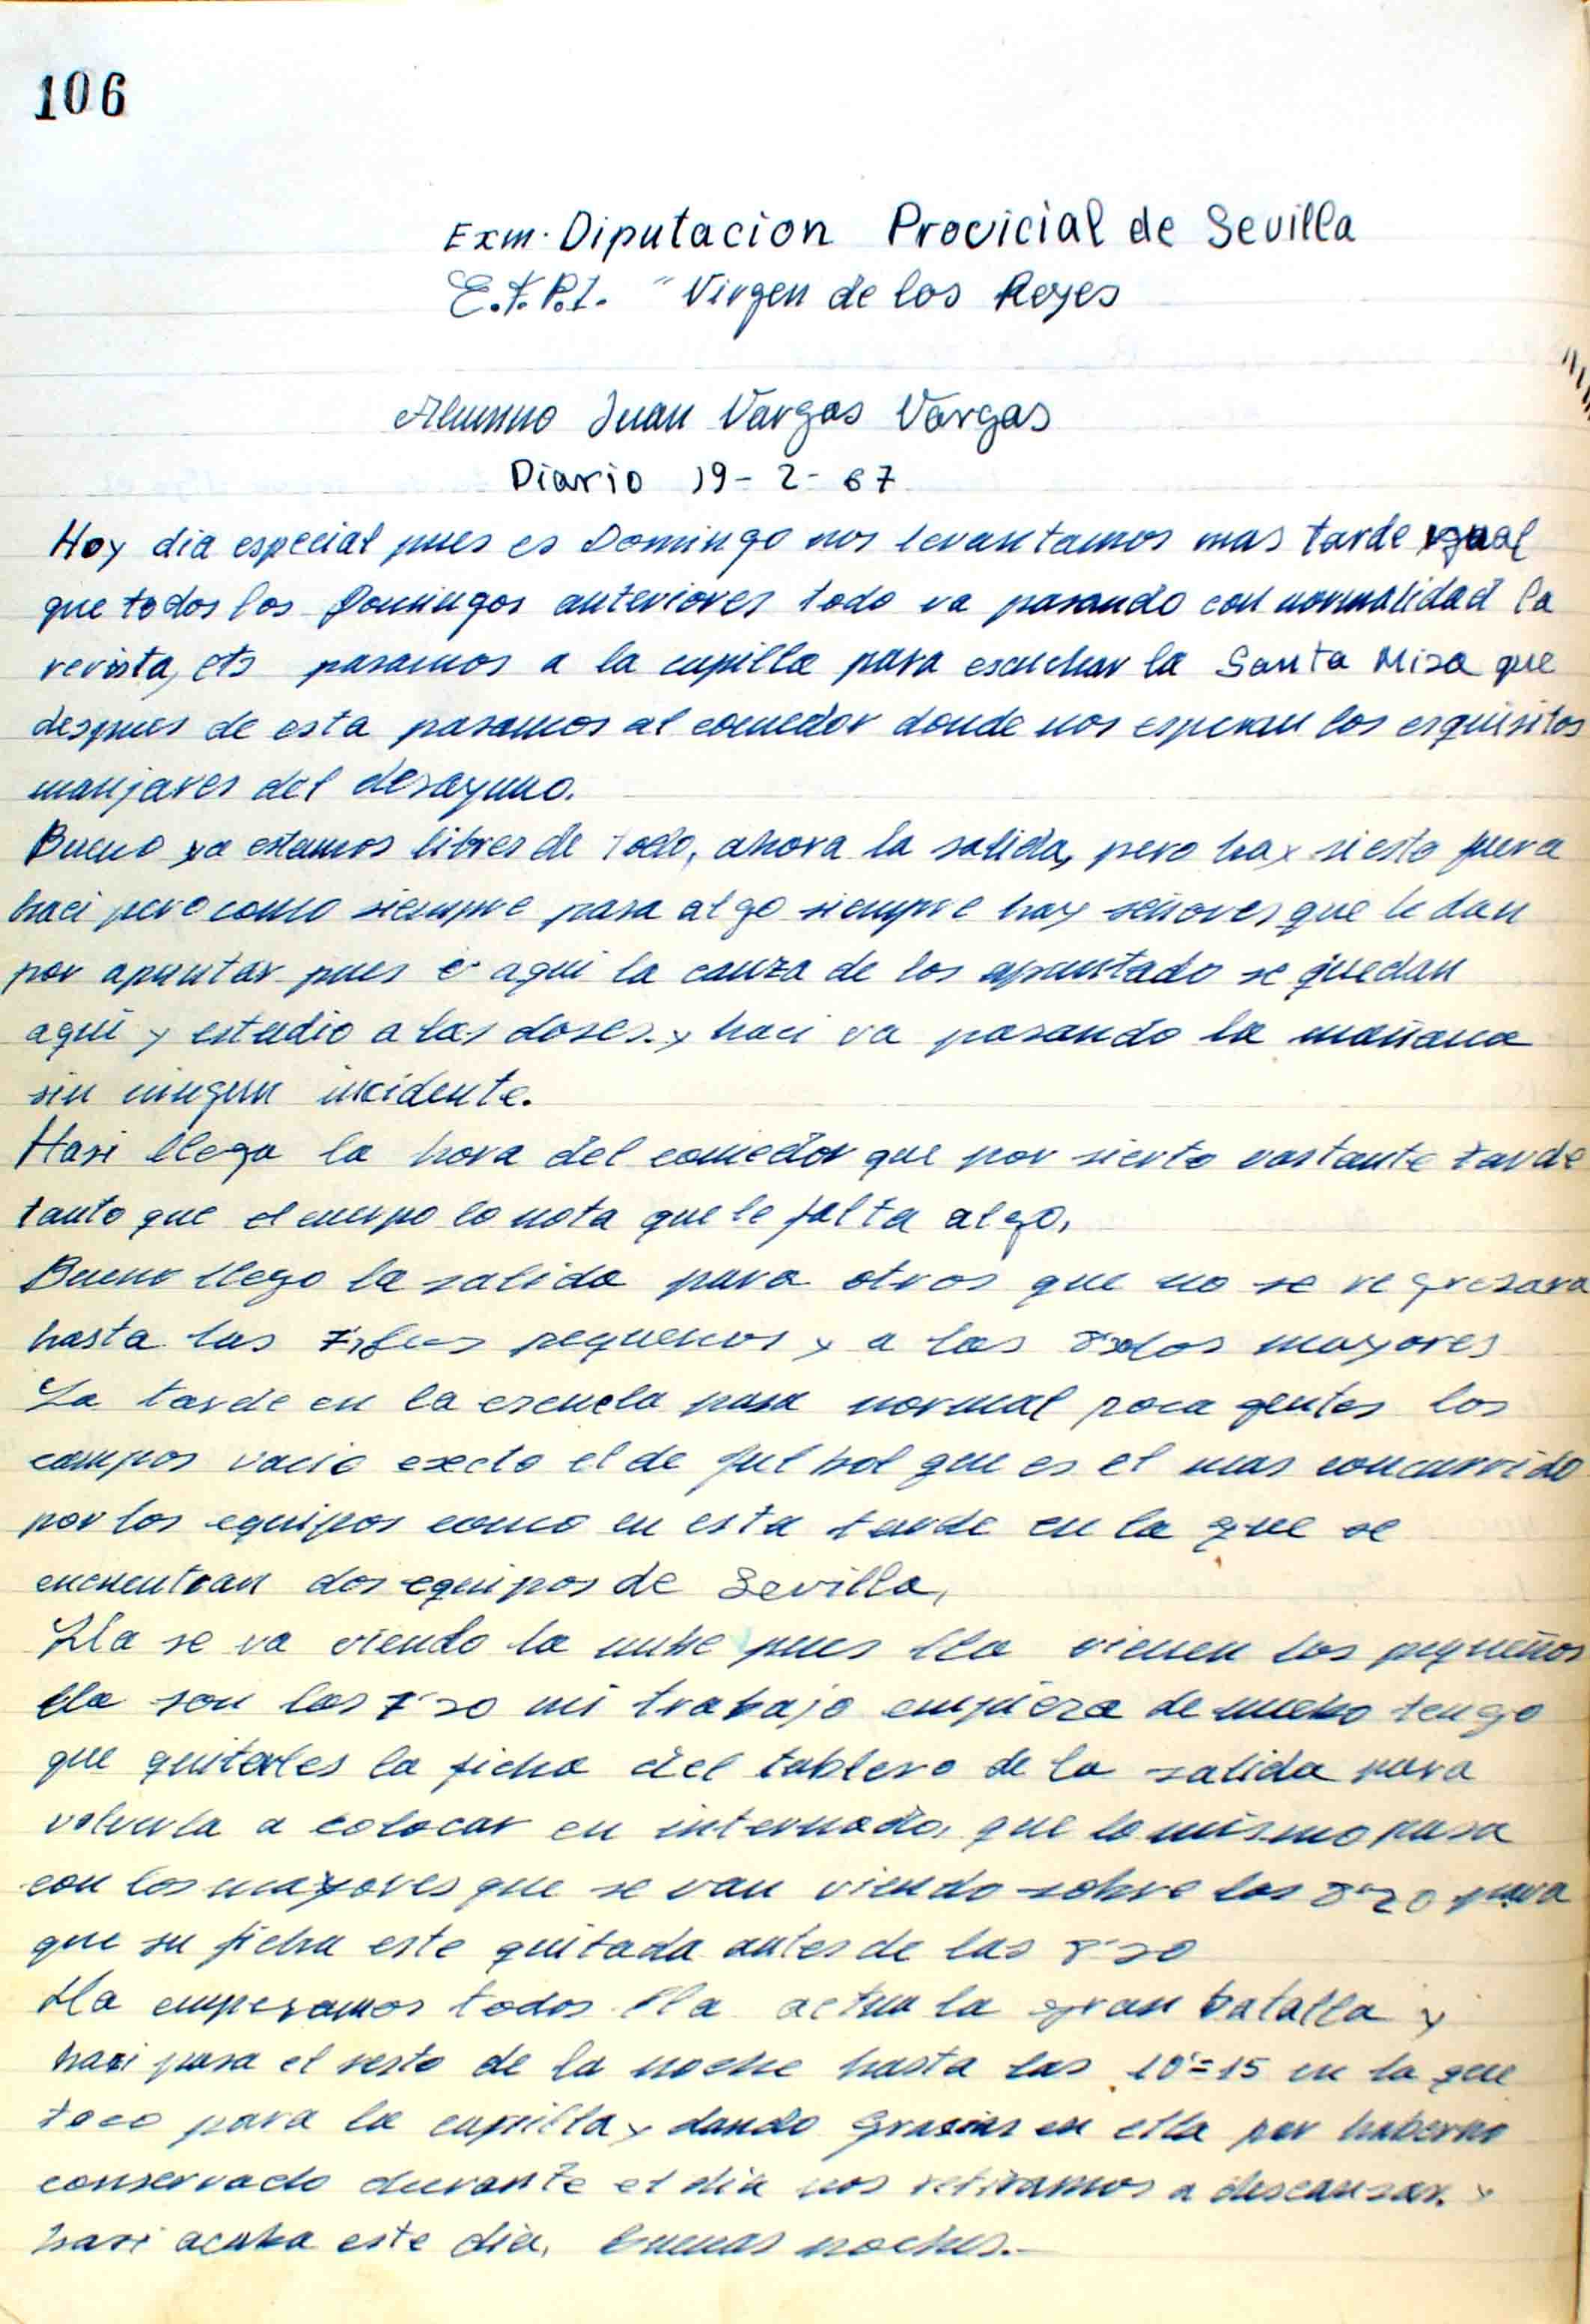 106
Exm. Diputacion Provicial de Sevilla
E.F.P.I. " Virgen de los Reyes
Alumno Juan Vargas Vargas
Diario 19-2-67
Hoy dia especial pues es Domingo nos levantamos mas tarde igual
que todos los Domingos anteriores todo va pasando con normalidad la
revista, ets pasamos a la capilla para escuchar la Santa Misa que
despues de esta pasamos al comedor donde nos esperan los esquisitos
manjares del desayuno.
Bueno ya estamos libres de todo, ahora la salida, pero hay si esto fuera
haci pero como siempre pasa algo siempre hay señores que le dan
por apuntar pues e aqui la cauza de los apuntado se quedan
aqui y estudio a las doses. y haci va pasando la mañana
sin ningun incidente.
Hasi llega la hora del comedor que por sierto vastante tarde
tanto que el cuerpo lo nota que le falta algo,
Bueno llego la salida para otros que no se regresara
hasta las pequenos y a las mayores
La tarde en la escuela pasa normal poca gentes los
campos vacio execto el de fulbol que es el mas concurrido
por los equipos como en esta tarde en la que se
encuentran dos equipos de Sevilla,
Lla se va viendo la nube pues lla vienen los pequeños
lla son las mi trabajo empieza de nuebo tengo
que quitarles la ficha del tablero de la salida para
volverla a colocar en internado, que lo mismo pasa
con los mayores que se van viendo sobre las para
que su ficha este quitada antes de las
Lla empezamos todos lla actua la gran batalla y
hasi pasa el resto de la noche hasta las 10'=15 en la que
toco para la capilla y dando grasias en ella por haberno
conservado durante el dia nos retiramos a descansar. y
hasi acaba este dia, buenas noches.-